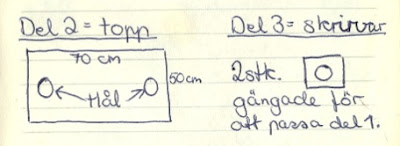 Del 2 = topp
70 cm
50 cm
Hål
Del 3 = skruvar
2 stk.
gängade för
att passa del 1.